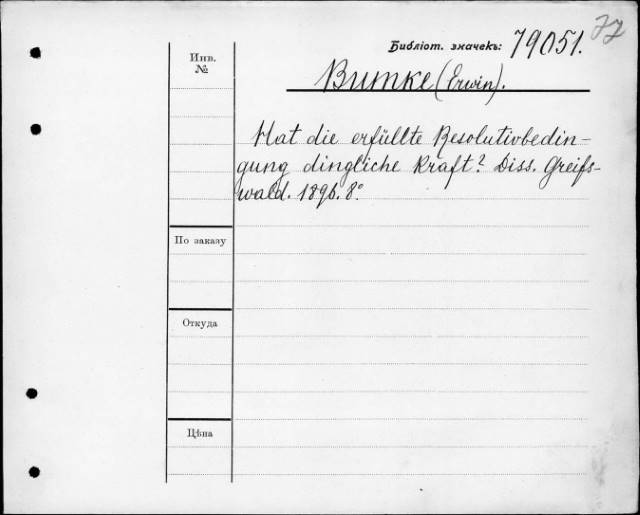 77
Библіот. значекъ: 79051.
Инв.
№
Bumke (Erwin).
Hat die erfüllte Resolutivbedin-
gung dingliche Kraft? Diss. Greifs-
wald. 1896. 8°.
По заказу
Откуда
Цѣна